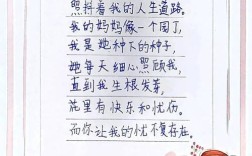 照抖着我的人生道路。
我的妈妈像一个园丁，
我是她种下的种子，
她每天细心照顾我，
直到我生根发芽，
花里有快乐和忧伤。
而你让我的忧不复存在。